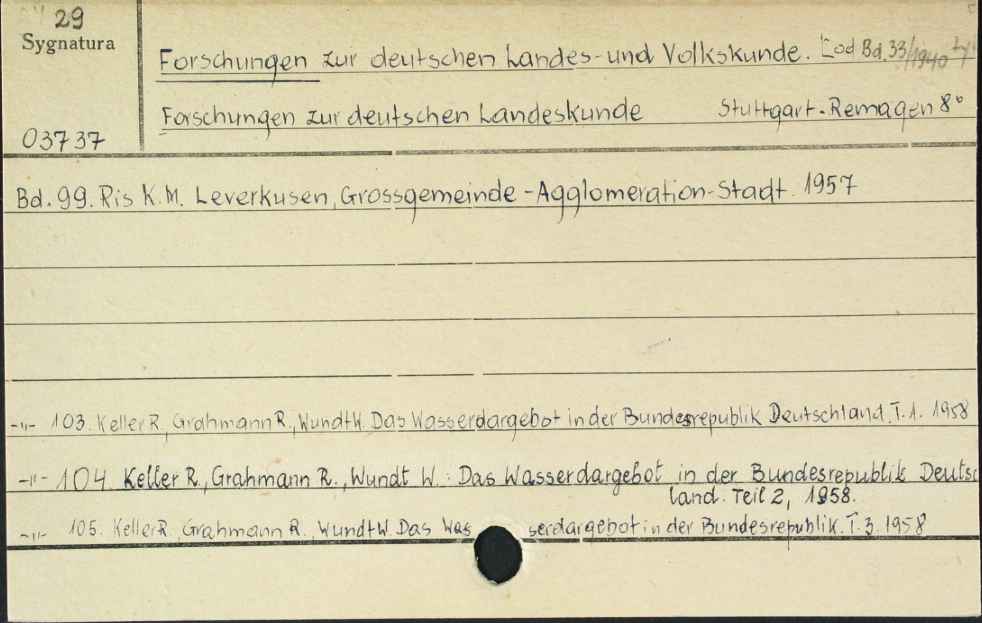 29
Sygnatura
03737
Forschungen zur deutschen Landes- und Volkskunde. [od Bd. 33/1940
Forschungen zur deutschen Landeskunde Stuttgart-Remagen 8°
Bd. 99. Ris K.M. Leverkusen, Grossgemeinde - Agglomeration - Stadt. 1957
-"- 103. Keller R, Grahmann R., Wundt W. Das Wasserdargebot in der Bundesrepublik Deutschland. T. 1. 1958
-"- 104. Keller R., Grahmann R., Wundt W.: Das Wasserdargebot in der Bundesrepublik Deutsc
land. Teil 2, 1958.
-"- 105. Keller R., Grahmann R., Wundt W. Das Was serdargebot in der Bundesrepublik. T. 3. 1958